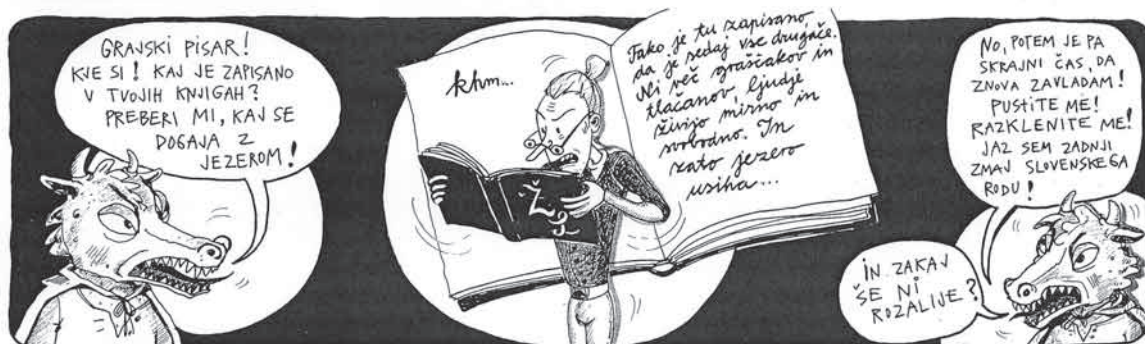 GRAJSKI PISAR!
KJE SI! KAJ JE ZAPISANO
V TVOJIH KNJIGAH?
PREBERI MI, KAJ SE
DOGAJA Z
JEZEROM!
khm...
Tako je tu zapisano,
da je sedaj vse drugače.
Ni več graščakov in
tlačanov, ljudje
živijo mirno in
svobodno. In
zato jezero
usiha...
NO, POTEM JE PA
SKRAJNI ČAS, DA
ZNOVA ZAVLADAM!
PUSTITE ME!
RAZKLENITE ME!
JAZ SEM ZADNJI
ZMAJ SLOVENSKEGA
RODU!
IN ZAKAJ
ŠE NI
ROZALIJE?